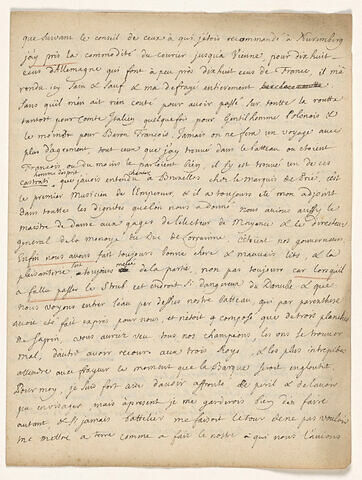 que suivant le conseil de ceux à qui j'etois recommandé à Nuremberg
j'ay pris la commodité du courier jusqu'a Vienne pour dix huit
ecus d'Allemagne qui font à peu près dix huit ecus de France, il m'a
rendu icy sain & sauf & m'a defrayé entierement
sans qu'il m'en ait rien couté pour avoir passé sur toutte la routte
tantost pour Comte Italien quelquefois pour Gentilhomme Polonois &
le moins pour Baron François, Jamais on ne fera un voyage avec
plus d'agrement, tout ceux que j'ay trouvé dans le batteau ou etoient
François ou du moins le parloient bien, il s'y est trouvé un de ces
homme d'esprit chanteur
castrats que j'avois entendu à Bruxelles chez le Marquis de Prié, c'est
le premier Musicien de l'Empereur, & il a toujours eté mon adjoint
dans touttes les dignités qu'on nous a donné nous avions aussy le
maistre de danse aux gages de l'electeur de Mayence & le Directeur
general de la monoye du Duc de Lorraine, c'etoient nos gouverneurs,
Enfin nous avons fait toujours bonne chere & mauvais lits, & la
plaisanterie toujours de la partie, non pas toujours car lorsqu'il
a fallu passer le Strub cet endroit si dangereux du Danube & que
nous voyions entrer l'eau par dessus notre batteau, qui par parenthese
avoit eté fait exprès pour nous, & n'etoit composé que de trois planches
de sapin, vous auriez veu tous nos champions, les uns se trouver
mal, d'autre avoir recours aux trois Roys, & les plus intrepides
attendre avec frayeur le moment que la Barque seroit engloutit
Pour moy, je suis fort aise d'avoir affronté ce peril & de l'avoir
pu envisager mais àpresent je me garderois bien d'en faire
autant, & si jamais battelier me faisoit le tour de ne pas vouloir
me mettre a terre comme a fait le nostre à qui nous l'avions